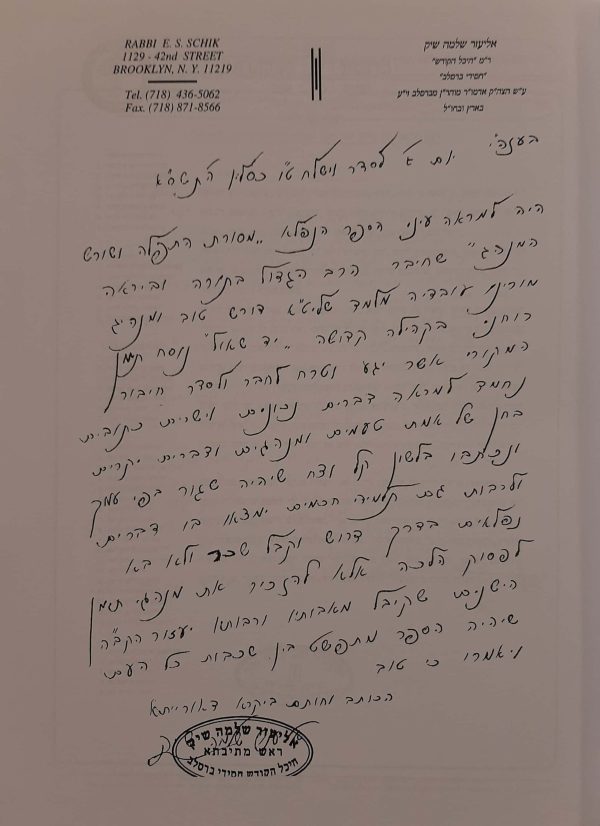 RABBI E. S. SCHIK
1129 - 42nd STREET
BROOKLYN, N. Y. 11219
Tel. (718) 436-5062
Fax. (718) 871-8566
אליעזר שלמה שיק
ר"מ "היכל הקודש"
"חסידי ברסלב"
ע"ש הצה"ק אדמו"ר מוהר"ן מברסלב זי"ע
בארץ ובחו"ל
בעזהי"
יום ג' לסדר וישלח ט"ו כסלין ה'תשח"א
היה למראה עיני הספר הנפלא "מסורת התפלה ושורש
המנהג" שחיבר הרב הגדול בתורה וביראה
מורינו עובדיה מלמד שליט"א דורש טוב ומנהיג
רוחני בקהילה קדושה "יד שאול" נוסח תימן
המקורי אשר יגע וטרח לחבר ולסדר חיבור
נחמד למראה דברים נכונים וישרים כתובים
בחן של אמת טעמים ומנהגים ודברים יקרים
ונכתבו בלשון קל וצח שיהיה שגור בפי
ולרבות גם תלמידי חכמים ימצאו בו דברים
נפלאים בדרך דרוש וקבל שכר ולא בא
לפסוק הלכה אלא להזכיר את מנהגי תימן
הישנים שקיבל מאבותיו ורבותיו יעזור הקב"ה
שיהיה הספר מתפשט בין שכבות כל העם
ויאמרו כי טוב
הכותב וחותם ביקרא דאורייתא
אליעזר שלמה שיק
ראש מתיבתא
היכל הקודש חסידי ברסלב